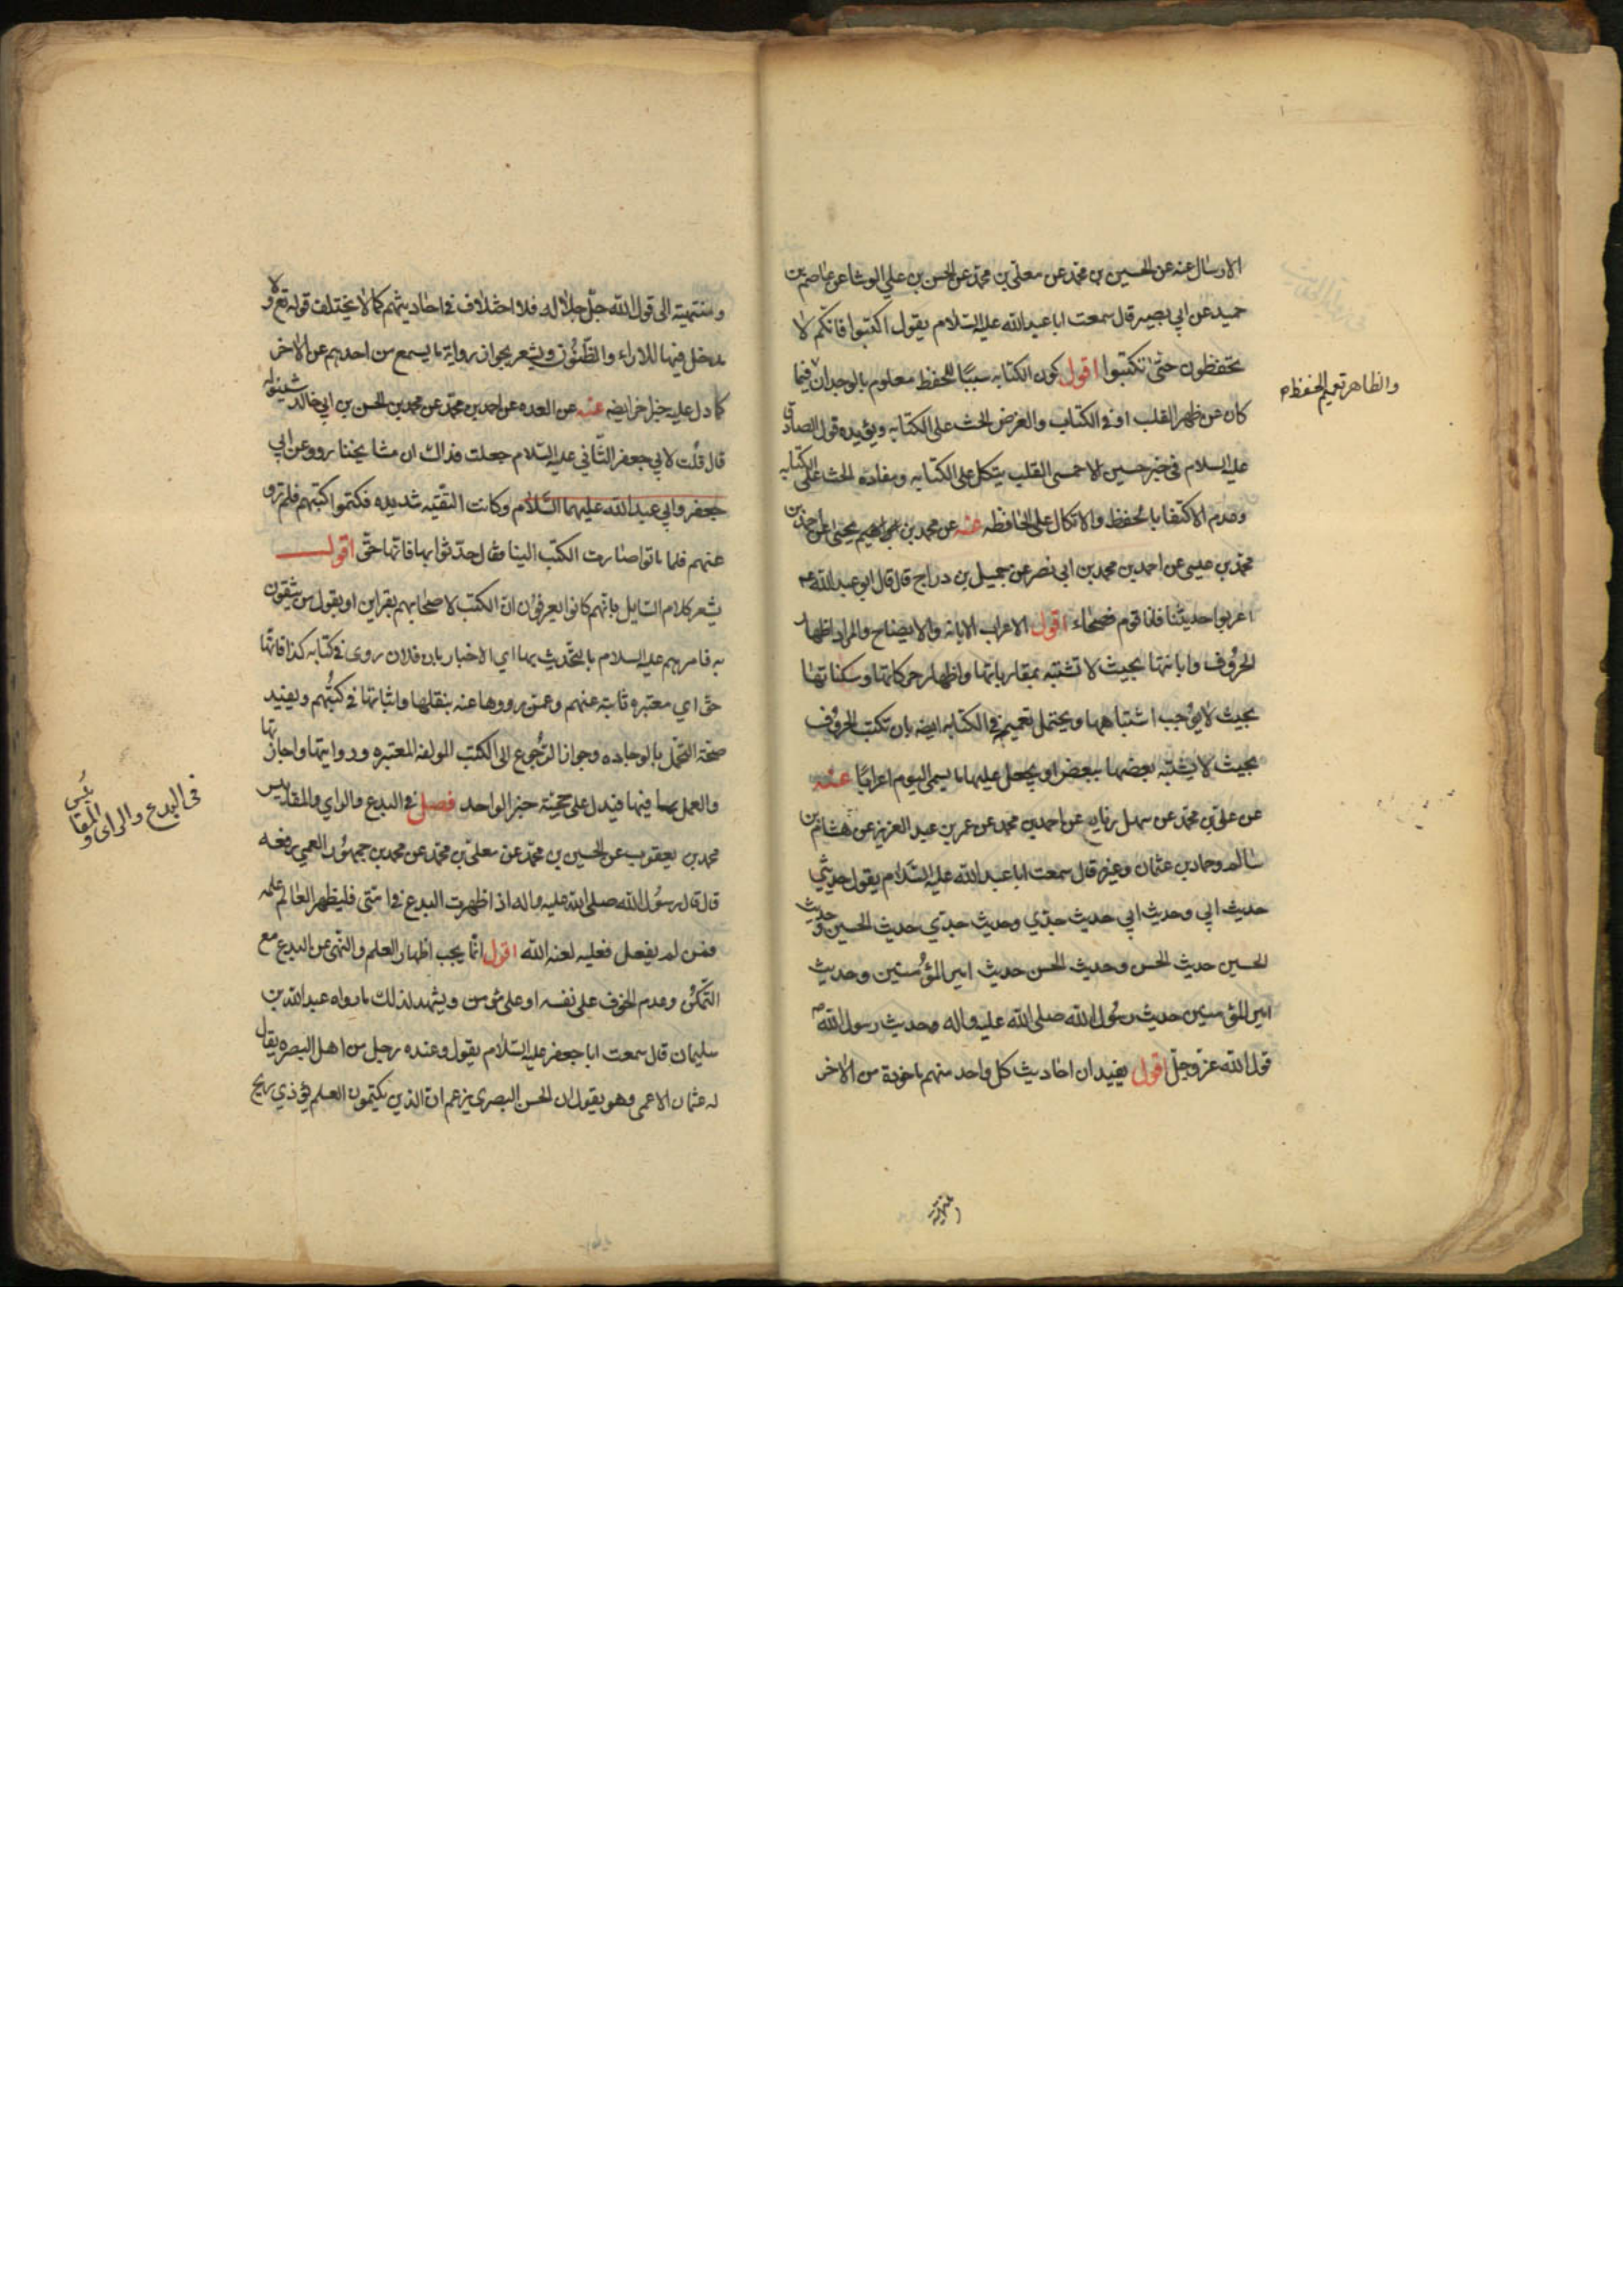 الارسال عنه عن الحسين بن محمد عن معلى بن محمد عن الحسن بن علي الوشا عن عاصم بن
حميد عن ابي بصير قال سمعت ابا عبد الله عليه السلام يقول اكتبوا فانكم لا
تحفظون حتى تكتبوا اقول كون الكتابه سببًا للحفظ معلوم بالوجدان فيما
والظاهر تعميم الحفظ
كان عن ظهر القلب او في الكتاب والغرض الحث على الكتابه ويؤيده قول الصادق
عليه السلام في خبر حسين الاحمسى القلب يتكل على الكتابه ومفاده الحث على الكتابه
وعدم الاكتفا بالحفظ والاتكال على الحافظه عنه عن محمد بن يحيى عن احمد بن
محمد بن عيسى عن احمد بن محمد بن ابي نصر عن جميل بن دراج قال قال ابو عبد الله ع
اعربوا حديثنا فانا قوم فصحاء اقول الاعراب الابانه والايضاح والمراد اظهار
الحروف وابانتها بحيث لا تشتبه بمقارباتها واظهار حركاتها وسكناتها
بحيث لا يوجب اشتباهها ويحتمل تعميم في الكتابه ايضه بان تكتب الحروف
بحيث لا يشتبه بعضها ببعض او يجعل عليها ما يسمى اليوم اعرابًا عنه
عن علي بن محمد عن سهل بن زياد عن احمد بن محمد عن عمر بن عبد العزيز عن هشام بن
سالم وحماد بن عثمان وغيره قال سمعت ابا عبد الله عليه السلام يقول حديثي
حديث ابي وحديث ابي حديث جدي وحديث جدي حديث الحسين وحديث
الحسين حديث الحسن وحديث الحسن حديث امير المؤمنين وحديث
امير المؤمنين حديث رسول الله صلى الله عليه واله وحديث رسول الله ص
قول الله عز وجل اقول يفيد ان احاديث كل واحد منهم ماخوذة من الاخر
ومنتهية
ومنتهية الى قول الله جل جلاله فلا اختلاف في احاديثهم كما لا يختلف قوله تع ولا
مدخل فيها للاراء والظنون ويشعر بجواز رواية ما يسمع من احدهم عن الاخر
كما دل عليه خبر اخر ايضه عنه عن العده عن احمد بن محمد عن محمد بن الحسن بن ابي خالد شينوله
قال قلت لابي جعفر الثاني عليه السلام جعلت فداك ان مشايخنا رووا عن ابي
جعفر وابي عبد الله عليهما السلام وكانت التقيه شديده فكتموا كتبهم فلم ترو
عنهم فلما ماتوا صارت الكتب الينا فقال حدثوا بها فانها حق اقول
يشعر كلام السايل بانهم كانوا يعرفون ان الكتب لاصحابهم بقراين او بقول من يثقون
به فامرهم عليه السلام بالتحديث بها اي الاخبار بان فلان روى في كتابه كذا فانها
حق اي معتبره ثابته عنهم وعمن رووها عنه بنقلها واثباتها في كتبهم ويفيد
صحة التحمل بالوجاده وجواز الرجوع الى الكتب المولفه المعتبره وروايتها واجازتها
والعمل بما فيها فيدل على حجية خبر الواحد فصل في البدع والراي والمقاييس
في البدع والراى والمقائيس
محمد بن يعقوب عن الحسين بن محمد عن معلى بن محمد عن محمد بن جمهور العمي رفعه
قال قال رسول الله صلى الله عليه واله اذا ظهرت البدع في امتى فليظهر العالم علمه
فمن لم يفعل فعليه لعنه الله اقول انما يجب اظهار العلم والنهي عن البدع مع
التمكن وعدم الخوف على نفسه او على مؤمن ويشهد لذلك ما رواه عبد الله بن
سليمان قال سمعت ابا جعفر عليه السلام يقول وعنده رجل من اهل البصره يقال
له عثمان الاعمى وهو يقول ان الحسن البصرى يزعم ان الذين يكتمون العلم يؤذي ريح